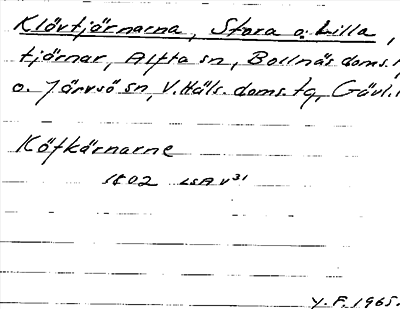 Klövtjärnarna, Stora o. Lilla,
tjärnar, Alfta sn, Bollnäs doms.
o. Järvsö sn, V. Häls. doms. tg, Gävl.
Köfkärnarne
1802 LSA V31
Y.F. 1965.